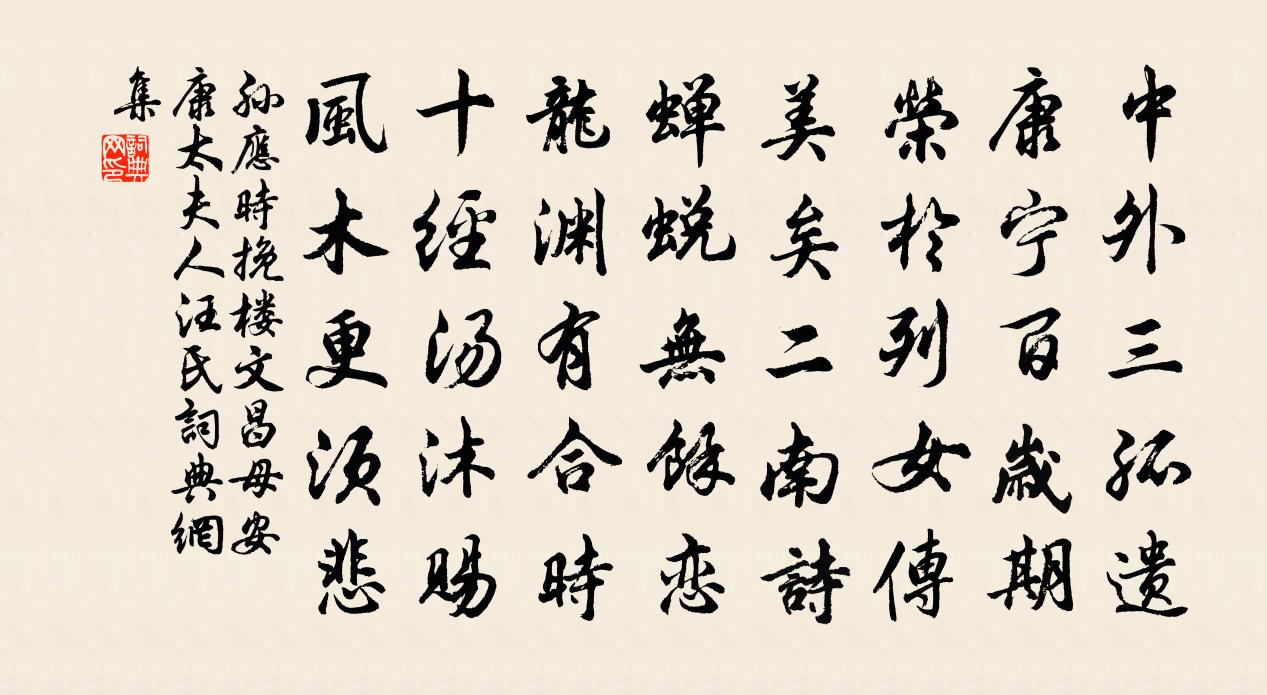 中外三孤遗
康宁百歲期
榮於列女傳
美矣二南詩
蝉蜕無餘恋
龍渊有合時
十經湯沐賜
風木更須悲
孙應時挽楼文昌母安
康太夫人汪氏詞典網
集
詞典
网印